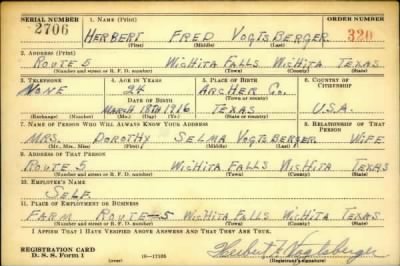 SERIAL NUMBER 1. NAME (Print) ORDER NUMBER
2706 HERBERT FRED VOGTSBERGER 320
(First) (Middle) (Last)
2. ADDRESS (Print)
ROUTE 5 WICHITA FALLS WICHITA TEXAS
(Number and street or R. F. D. number) (Town) (County) (State)
3. TELEPHONE 4. AGE IN YEARS 5. PLACE OF BIRTH 6. COUNTRY OF CITIZENSHIP
NONE 24 ARCHER CO.
DATE OF BIRTH (Town or county)
MARCH 18TH 1916 TEXAS U.S.A.
(Exchange) (Number) (Mo.) (Day) (Yr.) (State or country)
7. NAME OF PERSON WHO WILL ALWAYS KNOW YOUR ADDRESS 8. RELATIONSHIP OF THAT PERSON
MRS. DOROTHY SELMA VOGTSBERGER WIFE
(Mr., Mrs., Miss) (First) (Middle) (Last)
9. ADDRESS OF THAT PERSON
ROUTE 5 WICHITA FALLS WICHITA TEXAS
(Number and street or R. F. D. number) (Town) (County) (State)
10. EMPLOYER'S NAME
SELF
11. PLACE OF EMPLOYMENT OR BUSINESS
FARM ROUTE-5 WICHITA FALLS WICHITA TEXAS
(Number and street or R. F. D. number) (Town) (County) (State)
I AFFIRM THAT I HAVE VERIFIED ABOVE ANSWERS AND THAT THEY ARE TRUE.
REGISTRATION CARD
D. S. S. Form 1 (over) Herbert F. Vogtsberger
(Registrant's signature)